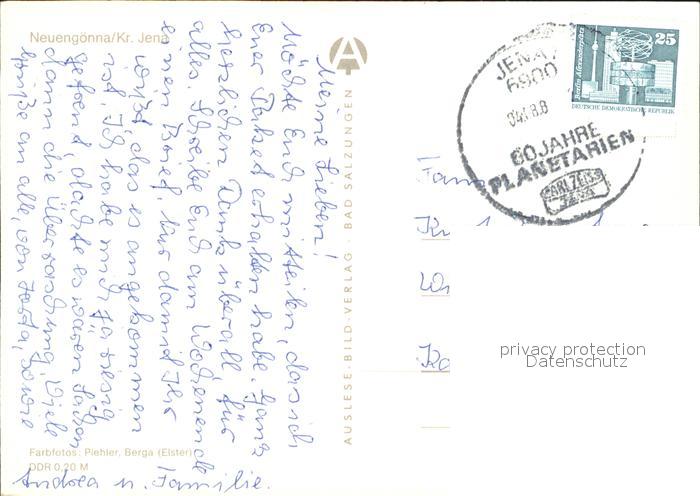 Neuengönna/Kr. Jena
Meine Lieben!
Möchte Euch mitteilen, das ich
Euer Paket erhalten habe. Ganz
herzlichen Dank überall für
alles. Schreibe Euch am Wochenende
einen Brief. Nur damit Ihr
wißt, das es angekommen
ist. Ich habe mich ja riesig
gefreut, dachte es wären Sachen
dann die Überraschung. Viele
Grüße an alle, von Jorda, sowie
Andrea u. Familie.
Farbfotos: Piehler, Berga (Elster)
DDR 0,20 M
AUSLESE-BILD-VERLAG · BAD SALZUNGEN
JENA 1
6900
60 JAHRE
PLANETARIEN
CARL ZEISS
JENA
25
Berlin, Alexanderplatz
DEUTSCHE DEMOKRATISCHE REPUBLIK
Fam
privacy protection
Datenschutz